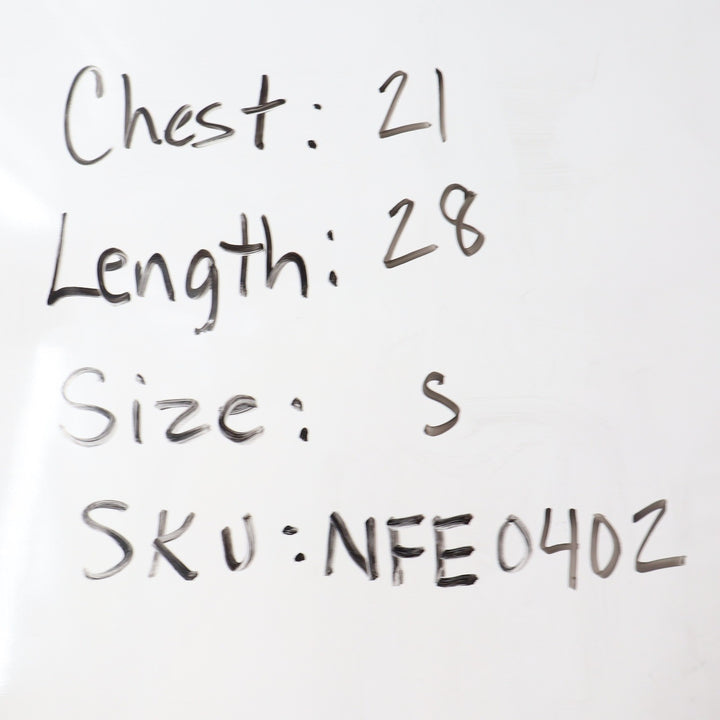 Chest: 21
Length: 28
Size: S
SKU: NFE0402